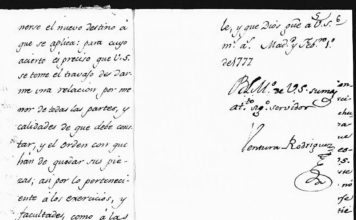 nerse el nuevo destino á
que se aplica: para cuyo
acierto es preciso que U.S.
se tome el travajo de dar-
me una relacion por me
nor de todas las partes, y
calidades de que debe cons
tar, y el orden con que
hán de quedar sus pie-
zas, asi por lo perteneci-
ente á los exercicios, y
facultades, como á las
le, y que Dios gûe á U.S.
m.s a.s Mad.d y Feb.o 1.o
de 1777
BLM.o de V.S. su mas
at.to seg.o servidor
Ventura Rodriguez